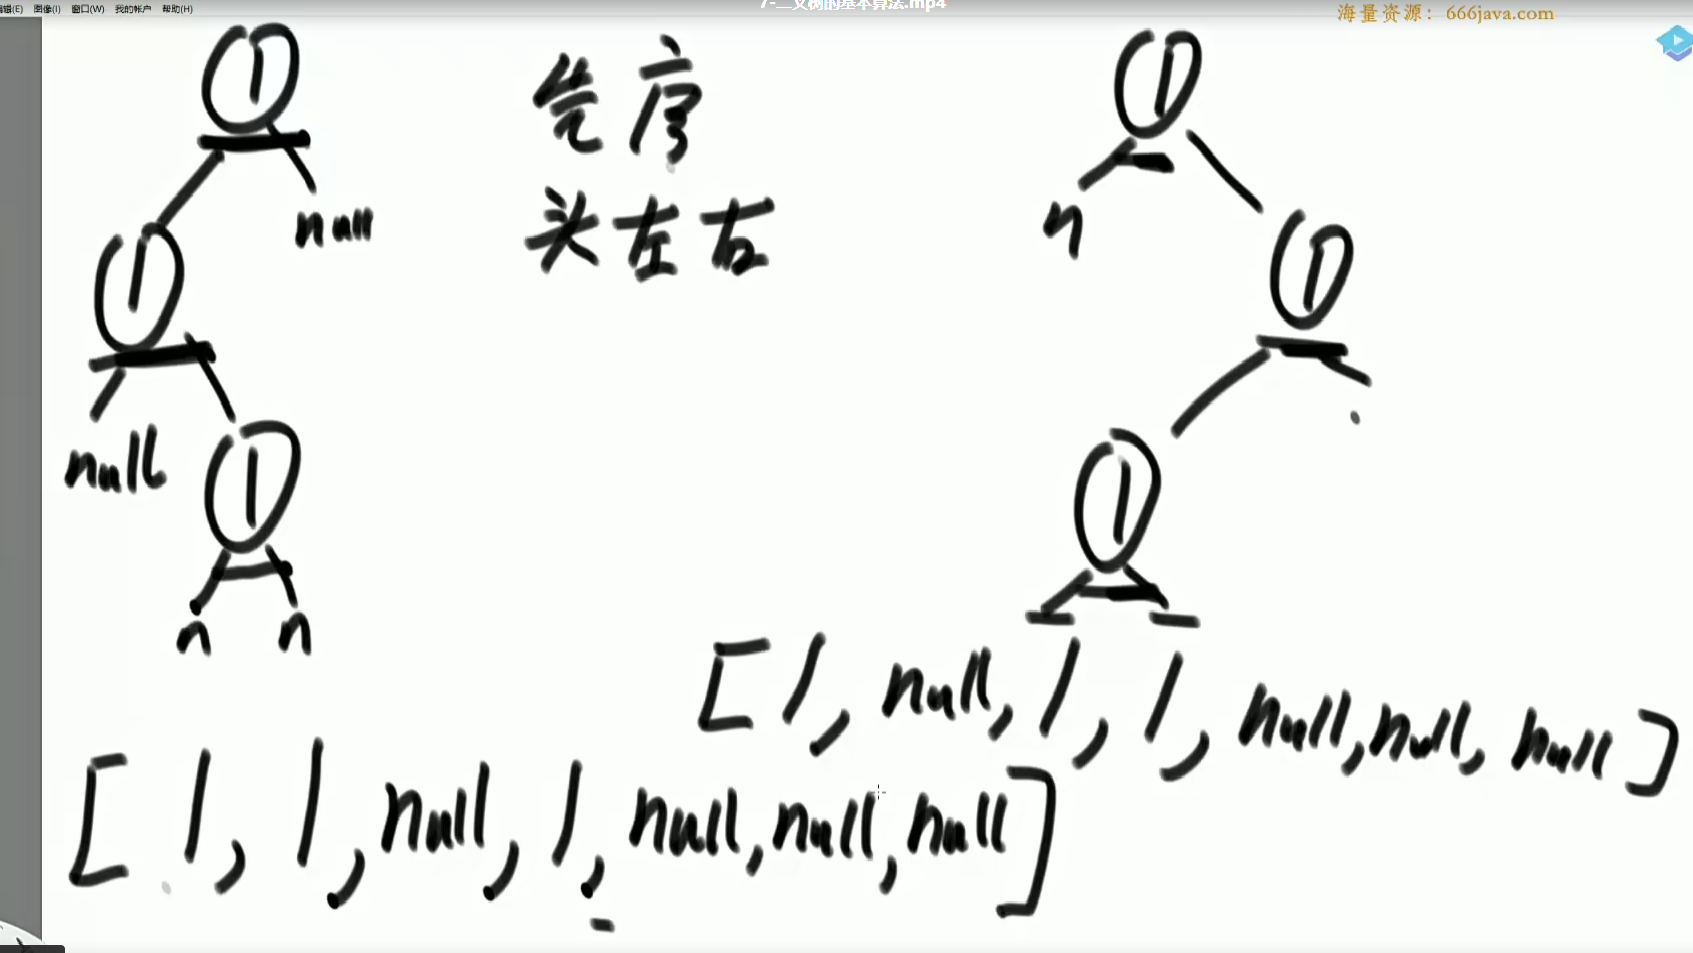 编辑(E) 图像(I) 窗口(W) 我的帐户 帮助(H)
7-二叉树的基本算法.mp4
海量资源：666java.com
1
1
先序
null
头左右
n
1
1
null
1
1
n n
[1, null, 1, 1, null, null, null]
[1, 1, null, 1, null, null, null]